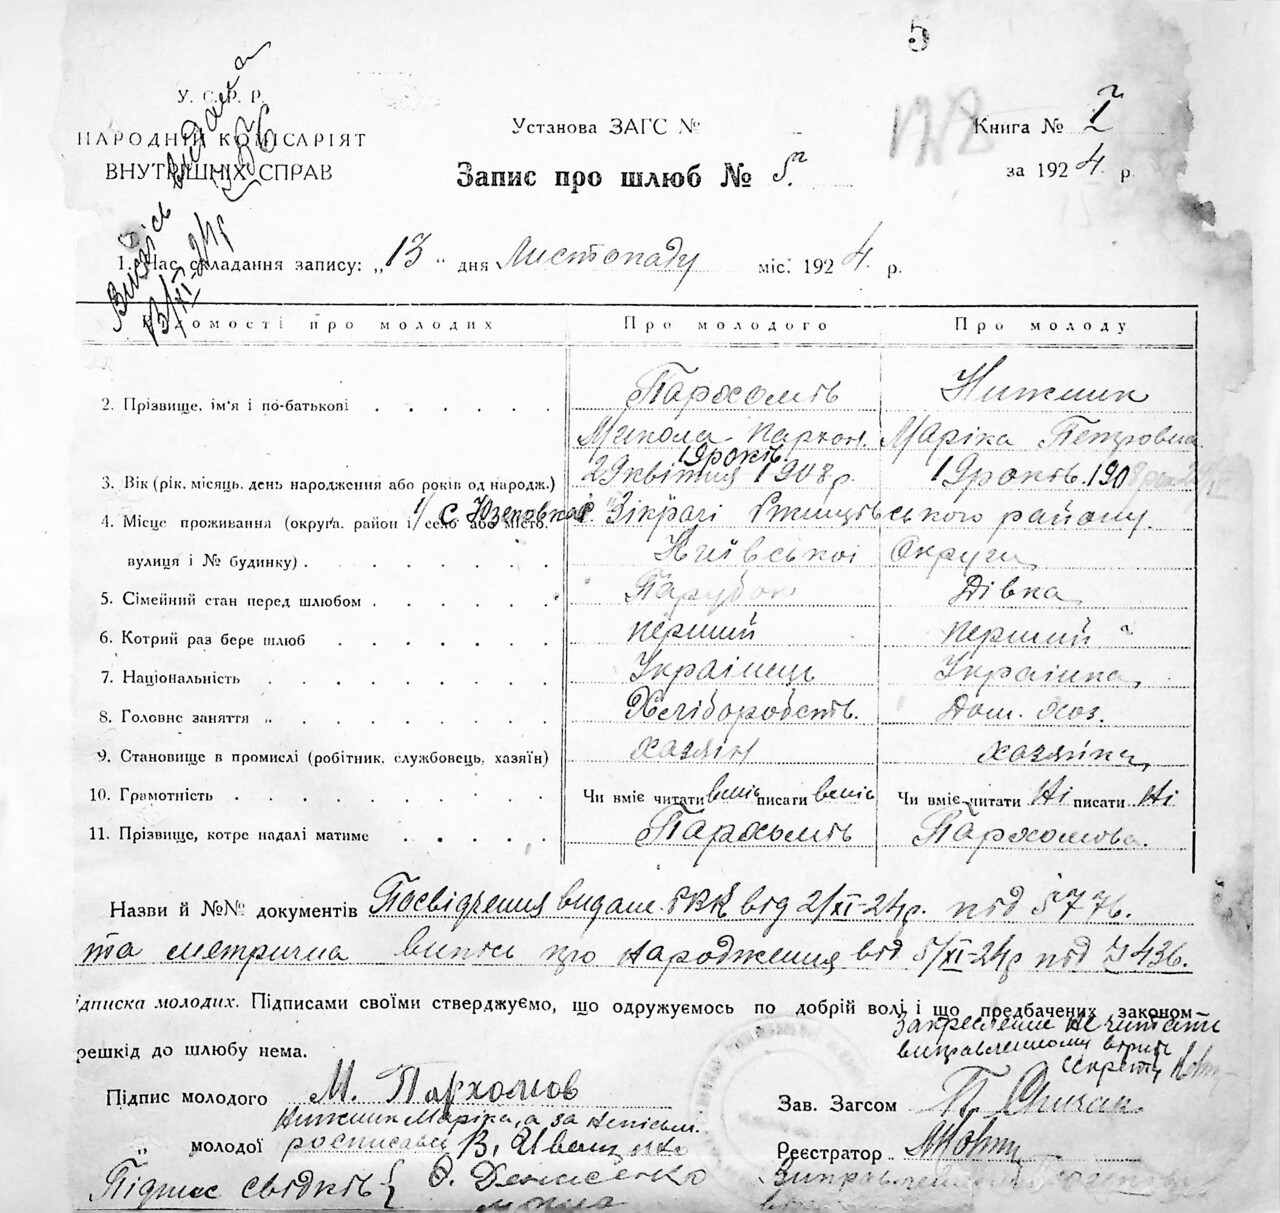 5
У. С. Р. Р.
НАРОДНІЙ КОМІСАРІЯТ
ВНУТРІШНІХ СПРАВ
Випись видана
13/XI-24р
Установа ЗАГС №
128
Книга № I
за 1924 р.
Запис про шлюб № 5
1. Час складання запису: „13" дня Листопаду міс. 1924 р.
Відомості про молодих Про молодого Про молоду
2. Прізвище, ім'я і по-батькові Пархомів Нижник
Микола Пархом. Маріка Петровна
19 років
3. Вік (рік, місяць, день народження або років од народж.) 29 квітня 1908 р. 19 років. 1908
4. Місце проживання (округа, район і село або місто, 1/ С Юзеповка с. Зікрачі Ржищівського району
вулиця і № будинку) Київської Округи
5. Сімейний стан перед шлюбом Парубок Дівка
6. Котрий раз бере шлюб перший перший
7. Національність Українець Українка
8. Головне заняття „ Хліборобств. Дом. хоз.
9. Становище в промислі (робітник, службовець, хазяїн) хазяін хазяйка
10. Грамотність Чи вміє читати вмів писати вмів Чи вміє читати Ні писати Ні
11. Прізвище, котре надалі матиме Пархомів Пархомова.
Назви й №№ документів Посвідчення видане РВК від 2/XI-24р. під 5776.
та метрична випись про народження від 5/XI-24р під 436.
ідписка молодих. Підписами своїми стверджуємо, що одружуємось по добрій волі і що предбачених законом
решкід до шлюбу нема.
закреслене не читати
виправленному вірить
Секрет.
Підпис молодого М. Пархомов
Зав. Загсом П.
Нижник Маріка, а за неписьм.
„ молодої росписався В. Иващенко
Реєстратор
Підпис свідків { Ф. Денисенко